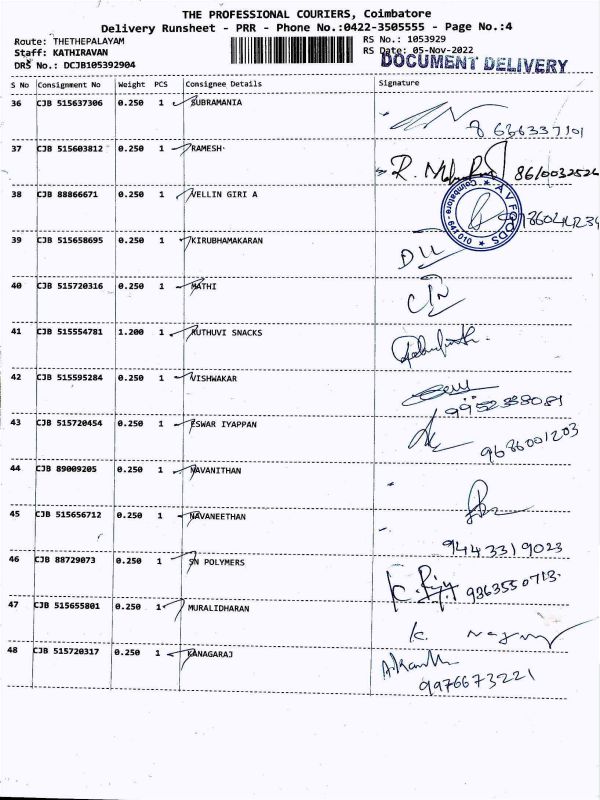 THE PROFESSIONAL COURIERS, Coimbatore
Delivery Runsheet - PRR - Phone No.:0422-3505555 - Page No.:4
Route: THETHEPALAYAM
RS No.: 1053929
Staff: KATHIRAVAN
RS Date: 05-Nov-2022
DRS No.: DCJB105392904
DOCUMENT DELIVERY
S No Consignment No Weight PCS Consignee Details Signature
36 CJB 515637306 0.250 1 SUBRAMANIA
8636337101
37 CJB 515603812 0.250 1 RAMESH
8610032526
38 CJB 88866671 0.250 1 VELLIN GIRI A
A V FOODS
Coimbatore - 641 010
39 CJB 515658695 0.250 1 KIRUBHAMAKARAN
40 CJB 515720316 0.250 1 MATHI
41 CJB 515554781 1.200 1 RUTHUVI SNACKS
42 CJB 515595284 0.250 1 VISHWAKAR
9952358081
43 CJB 515720454 0.250 1 ESWAR IYAPPAN
9686001203
44 CJB 89009205 0.250 1 NAVANITHAN
45 CJB 515656712 0.250 1 NAVANEETHAN
9443319023
46 CJB 88729073 0.250 1 SN POLYMERS
9363550713
47 CJB 515655801 0.250 1 MURALIDHARAN
K.
48 CJB 515720317 0.250 1 KANAGARAJ
9976673221